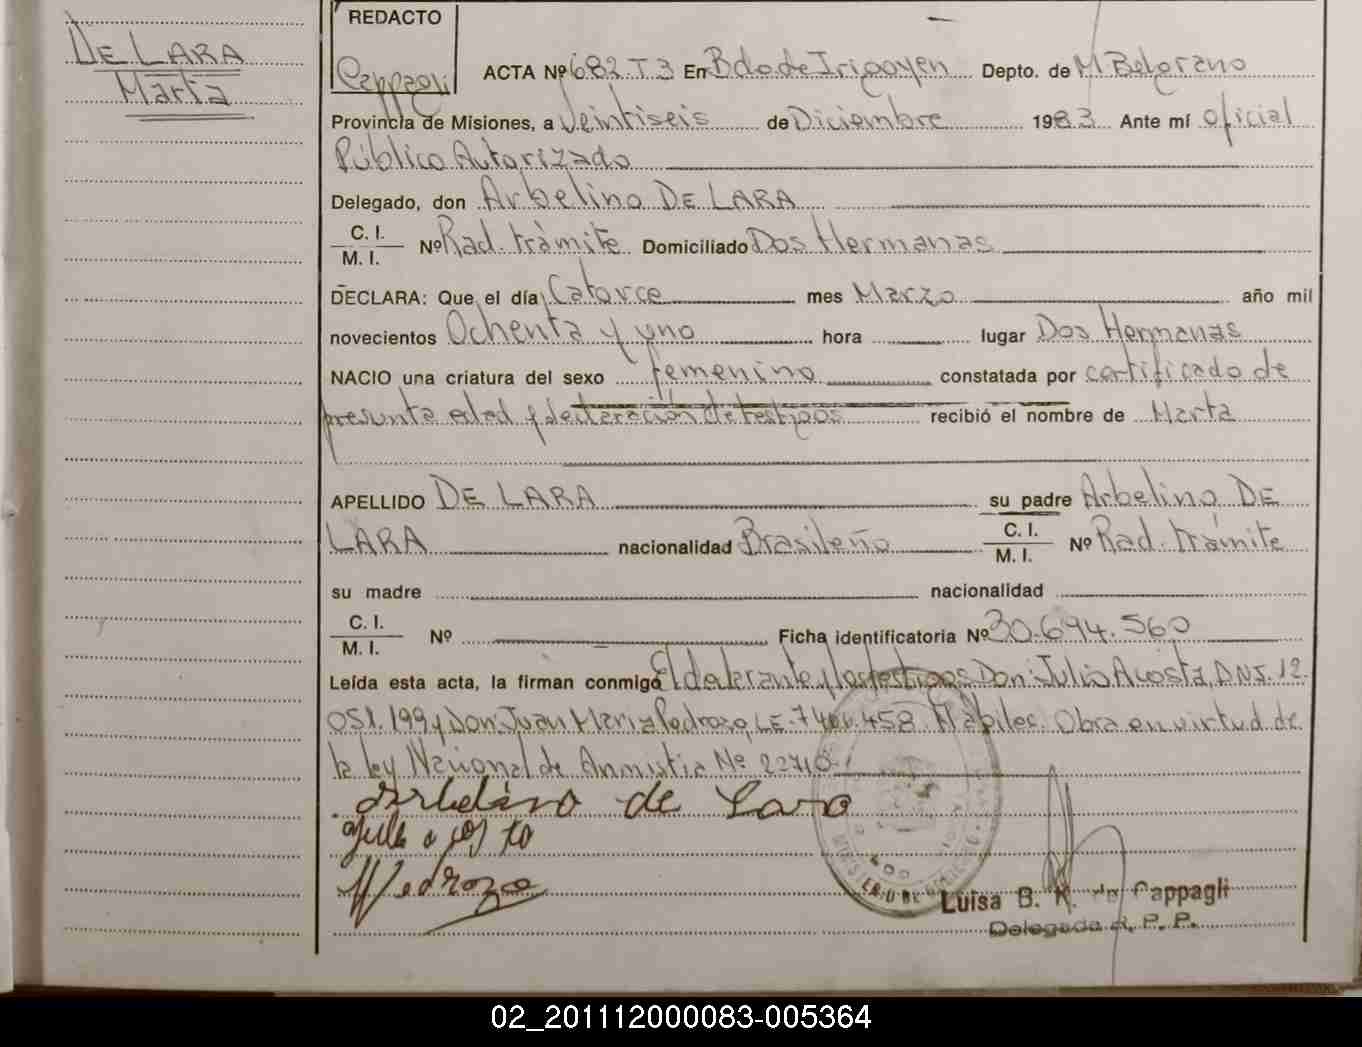 DE LARA
Marta
REDACTO
Cappagli
ACTA Nº 682. T 3 En Bdo. de Irigoyen Depto. de M Belgrano
Provincia de Misiones, a Veintiseis de Diciembre 1983 Ante mí oficial
Público Autorizado
Delegado, don Arbelino DE LARA
C. I.
M. I. Nº Rad. trámite Domiciliado Dos Hermanas
DECLARA: Que el día Catorce mes Marzo año mil
novecientos Ochenta y uno hora lugar Dos Hermanas
NACIO una criatura del sexo femenino constatada por certificado de
presunta edad y declaración de testigos recibió el nombre de Marta
APELLIDO DE LARA su padre Arbelino DE
LARA nacionalidad Brasileño C. I. M. I. Nº Rad. trámite
su madre nacionalidad
C. I.
M. I. Nº Ficha identificatoria Nº 30.694.560
Leída esta acta, la firman conmigo El declarante y los testigos Don: Julio Acosta, D.N.I. 12.
051.199 y Don: Juan Maria Pedrozo, L.E. 7.406.458 Hábiles. Obra en virtud de
la ley Nacional de Amnistia Nº 22710.
Arbelino de Lara
Pedrozo
Luisa B. K. de Cappagli
Delegada R. P. P.
02_201112000083-005364